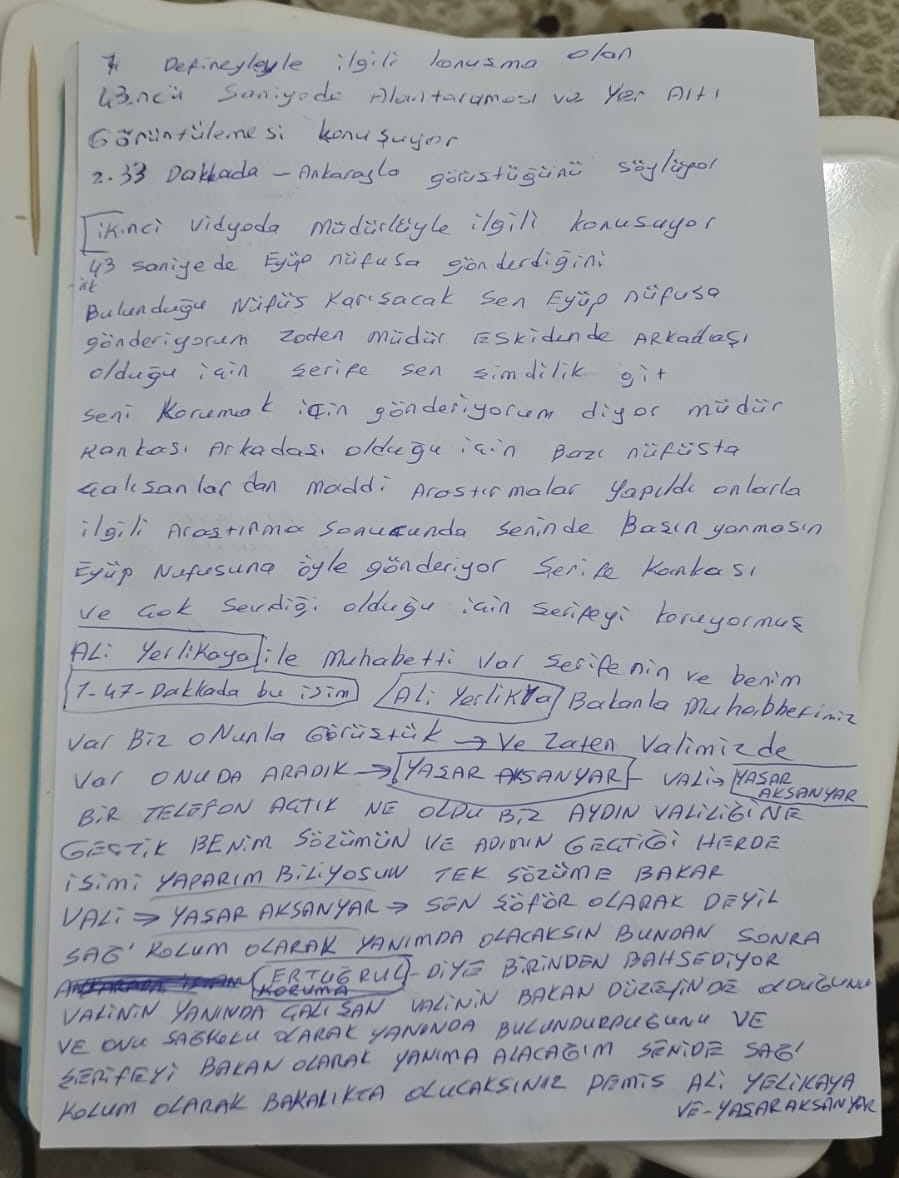 7 Defineyleyle ilgili konusma olan
43.ncü Saniyede Alantaraması ve Yer Altı
Görüntülemesi konuşuyor
2.33 Dakkada - Ankarayla görüstügünü söylüyor
ikinci vidyoda müdürlüyle ilgili konusuyor
43 saniyede Eyüp nüfusa gönderdiğini
Bulunduğu Nüfüs Karısacak Sen Eyüp nüfusa
gönderiyorum zaten müdür Eskidende ARKadaşı
olduğu için Serife sen simdilik git
seni Korumak için gönderiyorum diyor müdür
Kankası Arkadası olduğu için Bazı nüfüsta
Çalısanlardan maddi Arastırmalar yapıldı onlarla
ilgili Arastırma Sonucunda seninde Basın yanmasın
Eyüp Nufusuna öyle gönderiyor Serife Kankası
ve Çok Sevdiği olduğu için Serifeyi koruyormuş
ALi Yerlikaya ile Muhabetti Var Serifenin ve benim
1-47-Dakkada bu isim ALi Yerlikya Bakanla Muhabbetiniz
Var Biz ONunla Görüştük → Ve Zaten Valimizde
Var ONUDA ARADIK → YASAR AKSANYAR VALi → YASAR AKSANYAR
BiR TELEFON AÇTIK NE OLDU BiZ AYDIN VALiLiĞiNE
GEÇTiK BENiM SÖZÜMÜN VE ADIMIN GEÇTiĞi HERDE
iSiMi YAPARIM BiLiYOSUN TEK SÖZÜME BAKAR
VALi ⇒ YASAR AKSANYAR → SEN ŞÖFÖR OLARAK DEYiL
SAĞ' KOLUM OLARAK YANIMDA OLACAKSIN BUNDAN SONRA
ERTUĞRUL KORUMA - DiYE BiRiNDEN BAHSEDiYOR
VALiNiN YANINDA ÇALISAN VALiNiN BAKAN DÜZEYiNDE OLDUĞUNU
VE ONU SAĞKOLU OLARAK YANINDA BULUNDURDUĞUNU VE
ŞERiFEYi BAKAN OLARAK YANIMA ALACAĞIM SENiDE SAĞ'
KOLUM OLARAK BAKALIKTA OLUCAKSINIZ DEMiS ALi YELiKAYA
VE-YASAR AKSANYAR